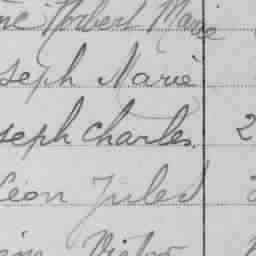 ne Norbert Marie
seph Marie
seph Charles. 2
Léon Jules
Victor